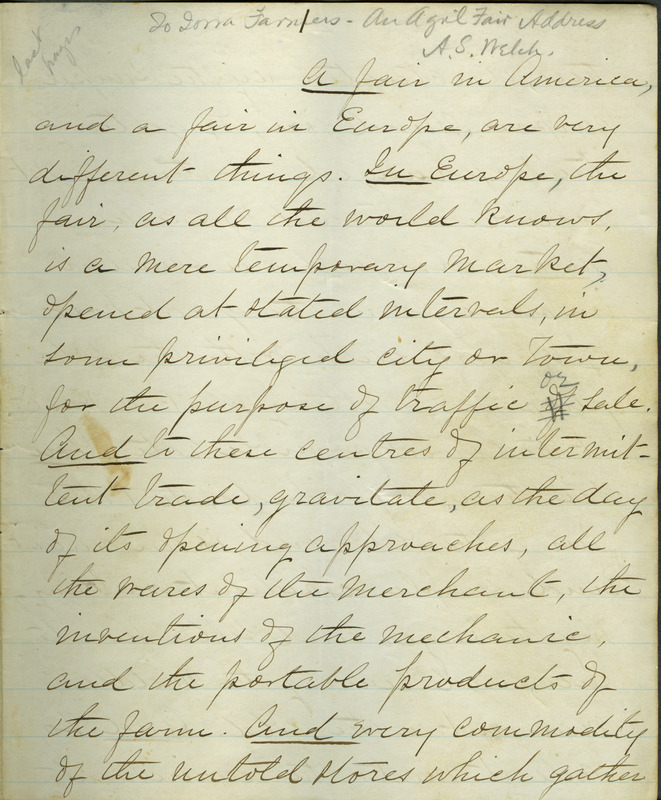 To Iowa Farmers - An Agr'l Fair Address
A. S. Welch.
pages
A fair in America,
and a fair in Europe, are very
different things. In Europe, the
fair, as all the world knows,
is a mere temporary market,
opened at stated intervals, in
some priviliged city or Town,
for the purpose of traffic or sale.
And to these centres of intermit-
tent trade, gravitate, as the day
of its opening approaches, all
the wares of the merchant, the
inventions of the mechanic,
and the portable products of
the farm. And every commodity
of the untold stores which gather